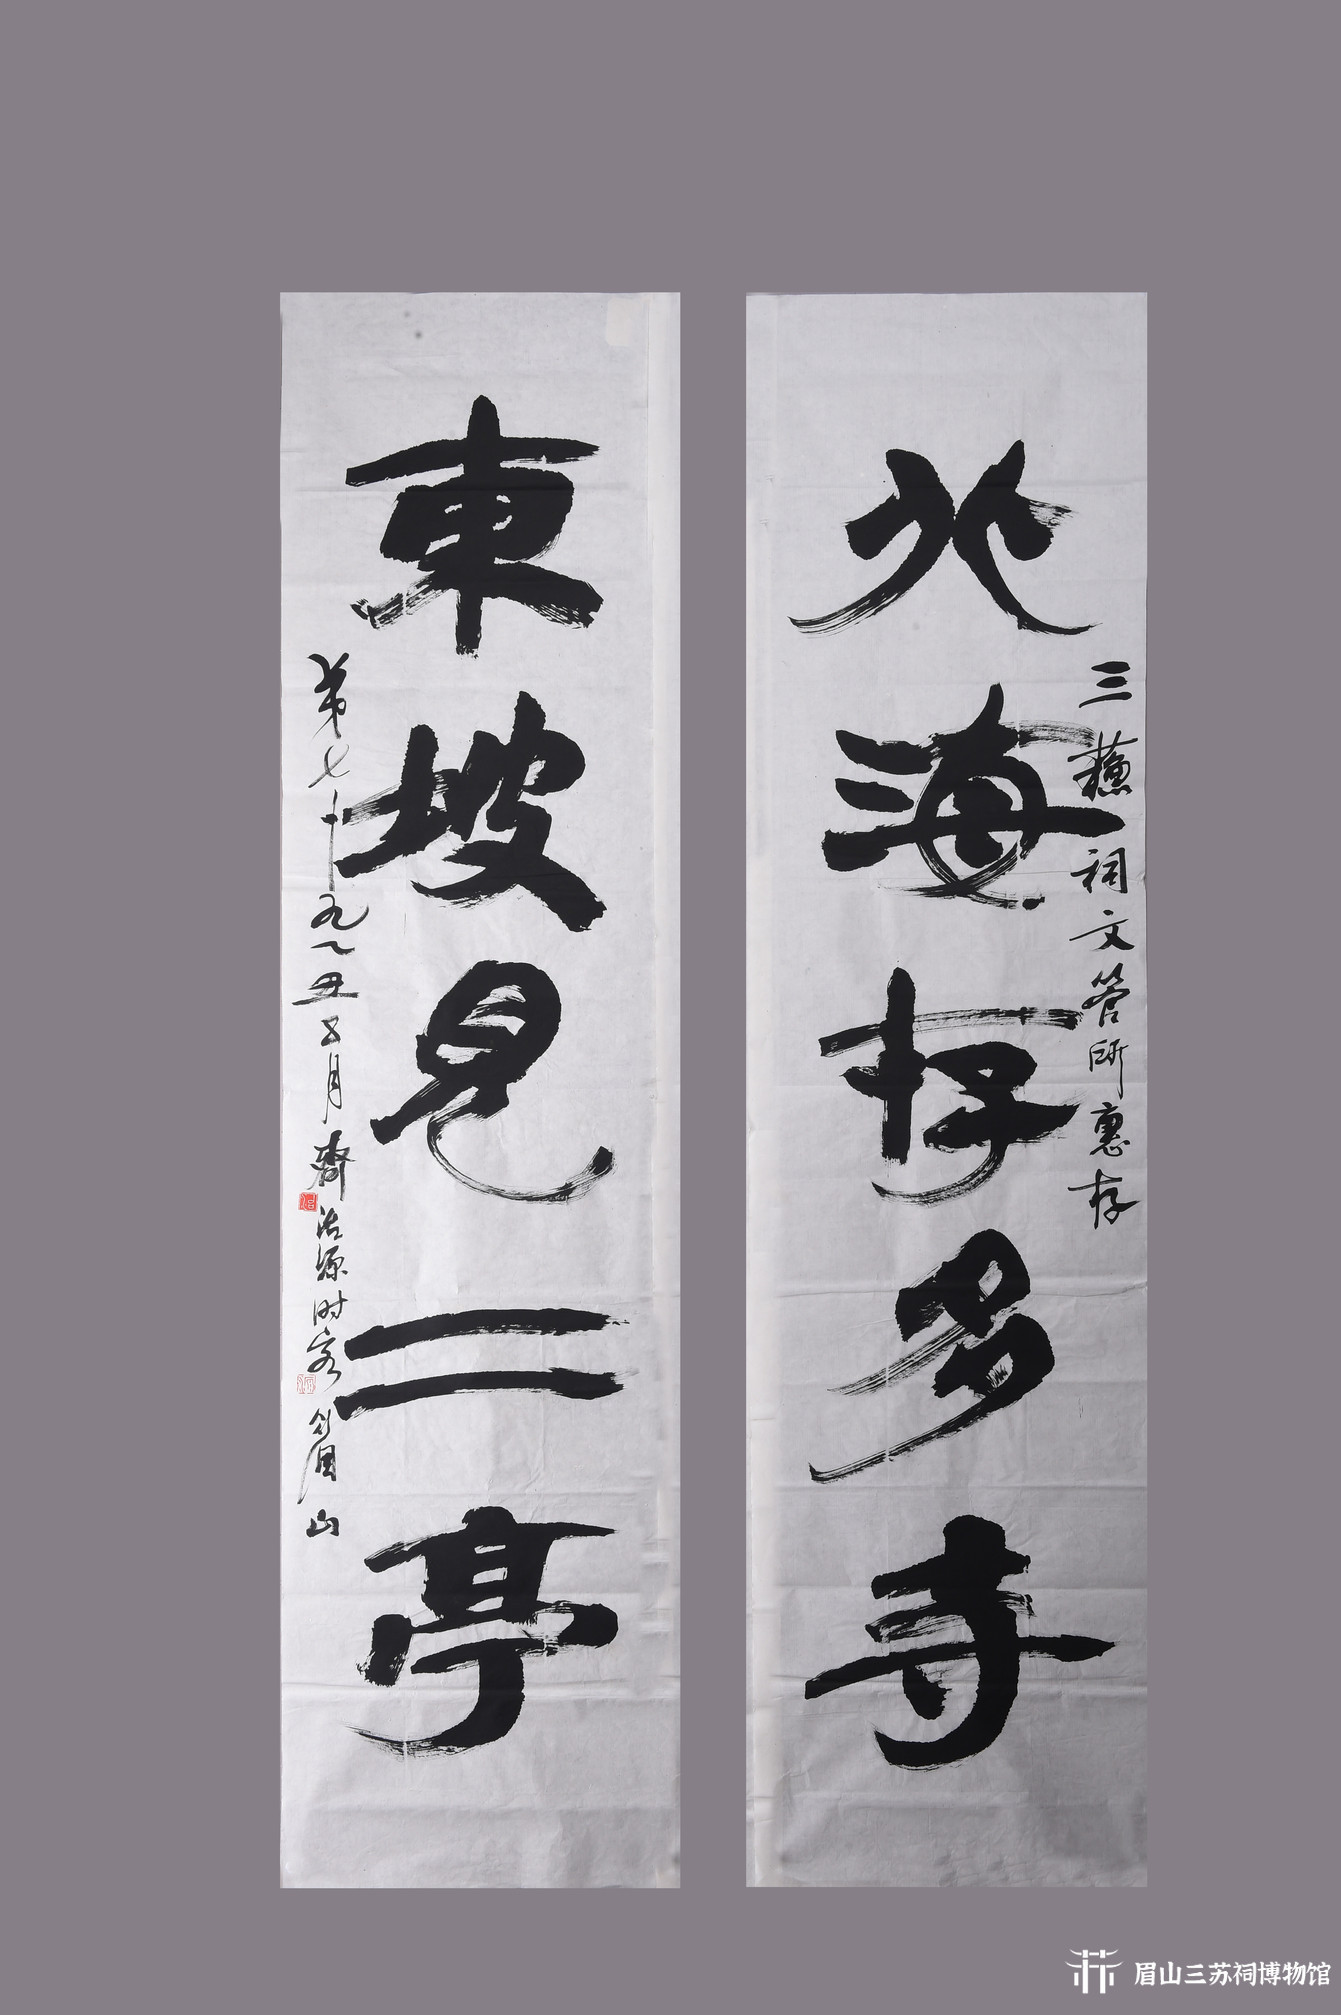 三蘓祠文管所惠存
北海存多寺
東坡見二亭
第七十九乙丑五月齊治源时客眉山
眉山三苏祠博物馆